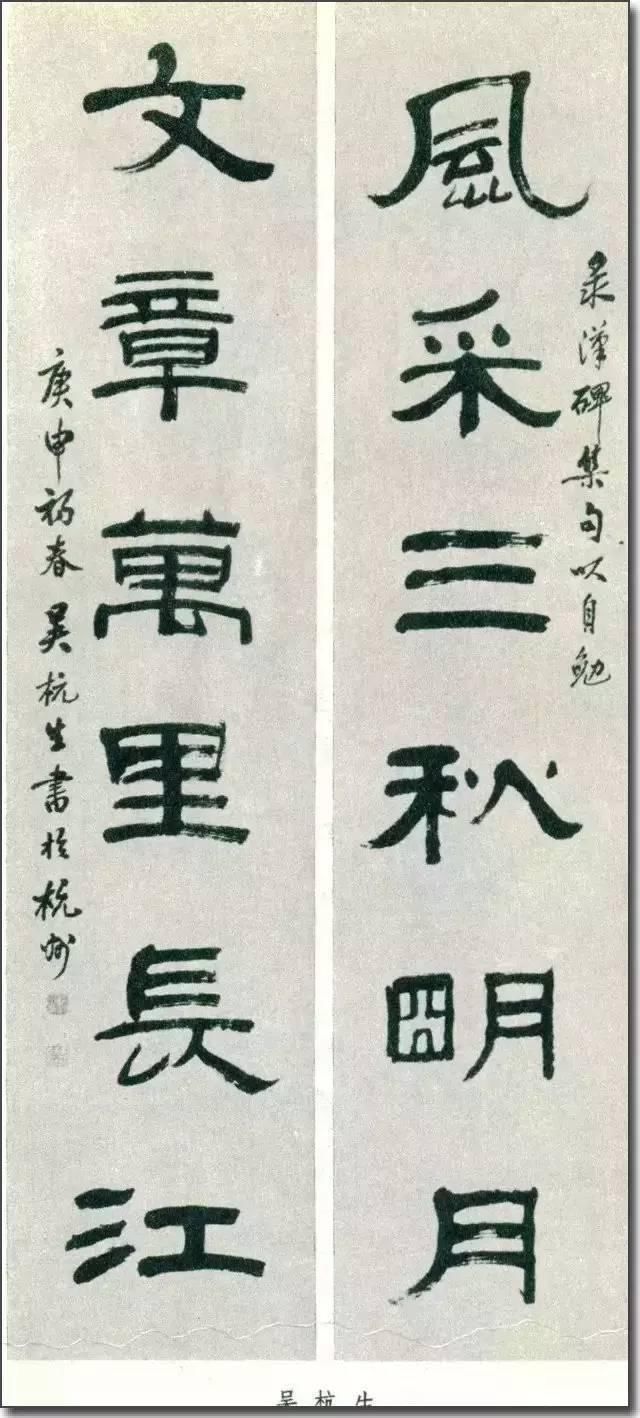 風采三秋明月
录漢碑集句以自勉
文章萬里長江
庚申初春吴杭生書於杭州
吴杭生